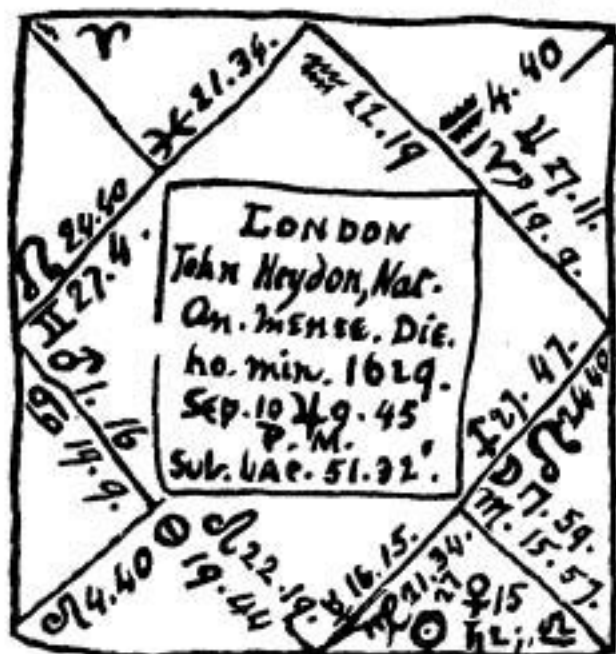 ♈
♓ 21.34.
♒ 22.19
4.40
♑ ♃ 27.11.
19.9.
☊ 24.40
♊ 27.4.
♂ 1.16
♋ 19.9.
LONDON
John Heydon, Nat.
An. mense. Die.
ho. min. 1629.
Sep. 10 ♃ 9.45
P. M.
Sub. Lat. 51.32'.
♐ 27.47.
24.40
☽ 17.59.
♏ 15.57.
♌ 4.40
⊕ ♌ 22.19.
19.44
☿ 16.15.
♍ 21.34.
☉ 27 ♀ 15
♄ 2; ♎